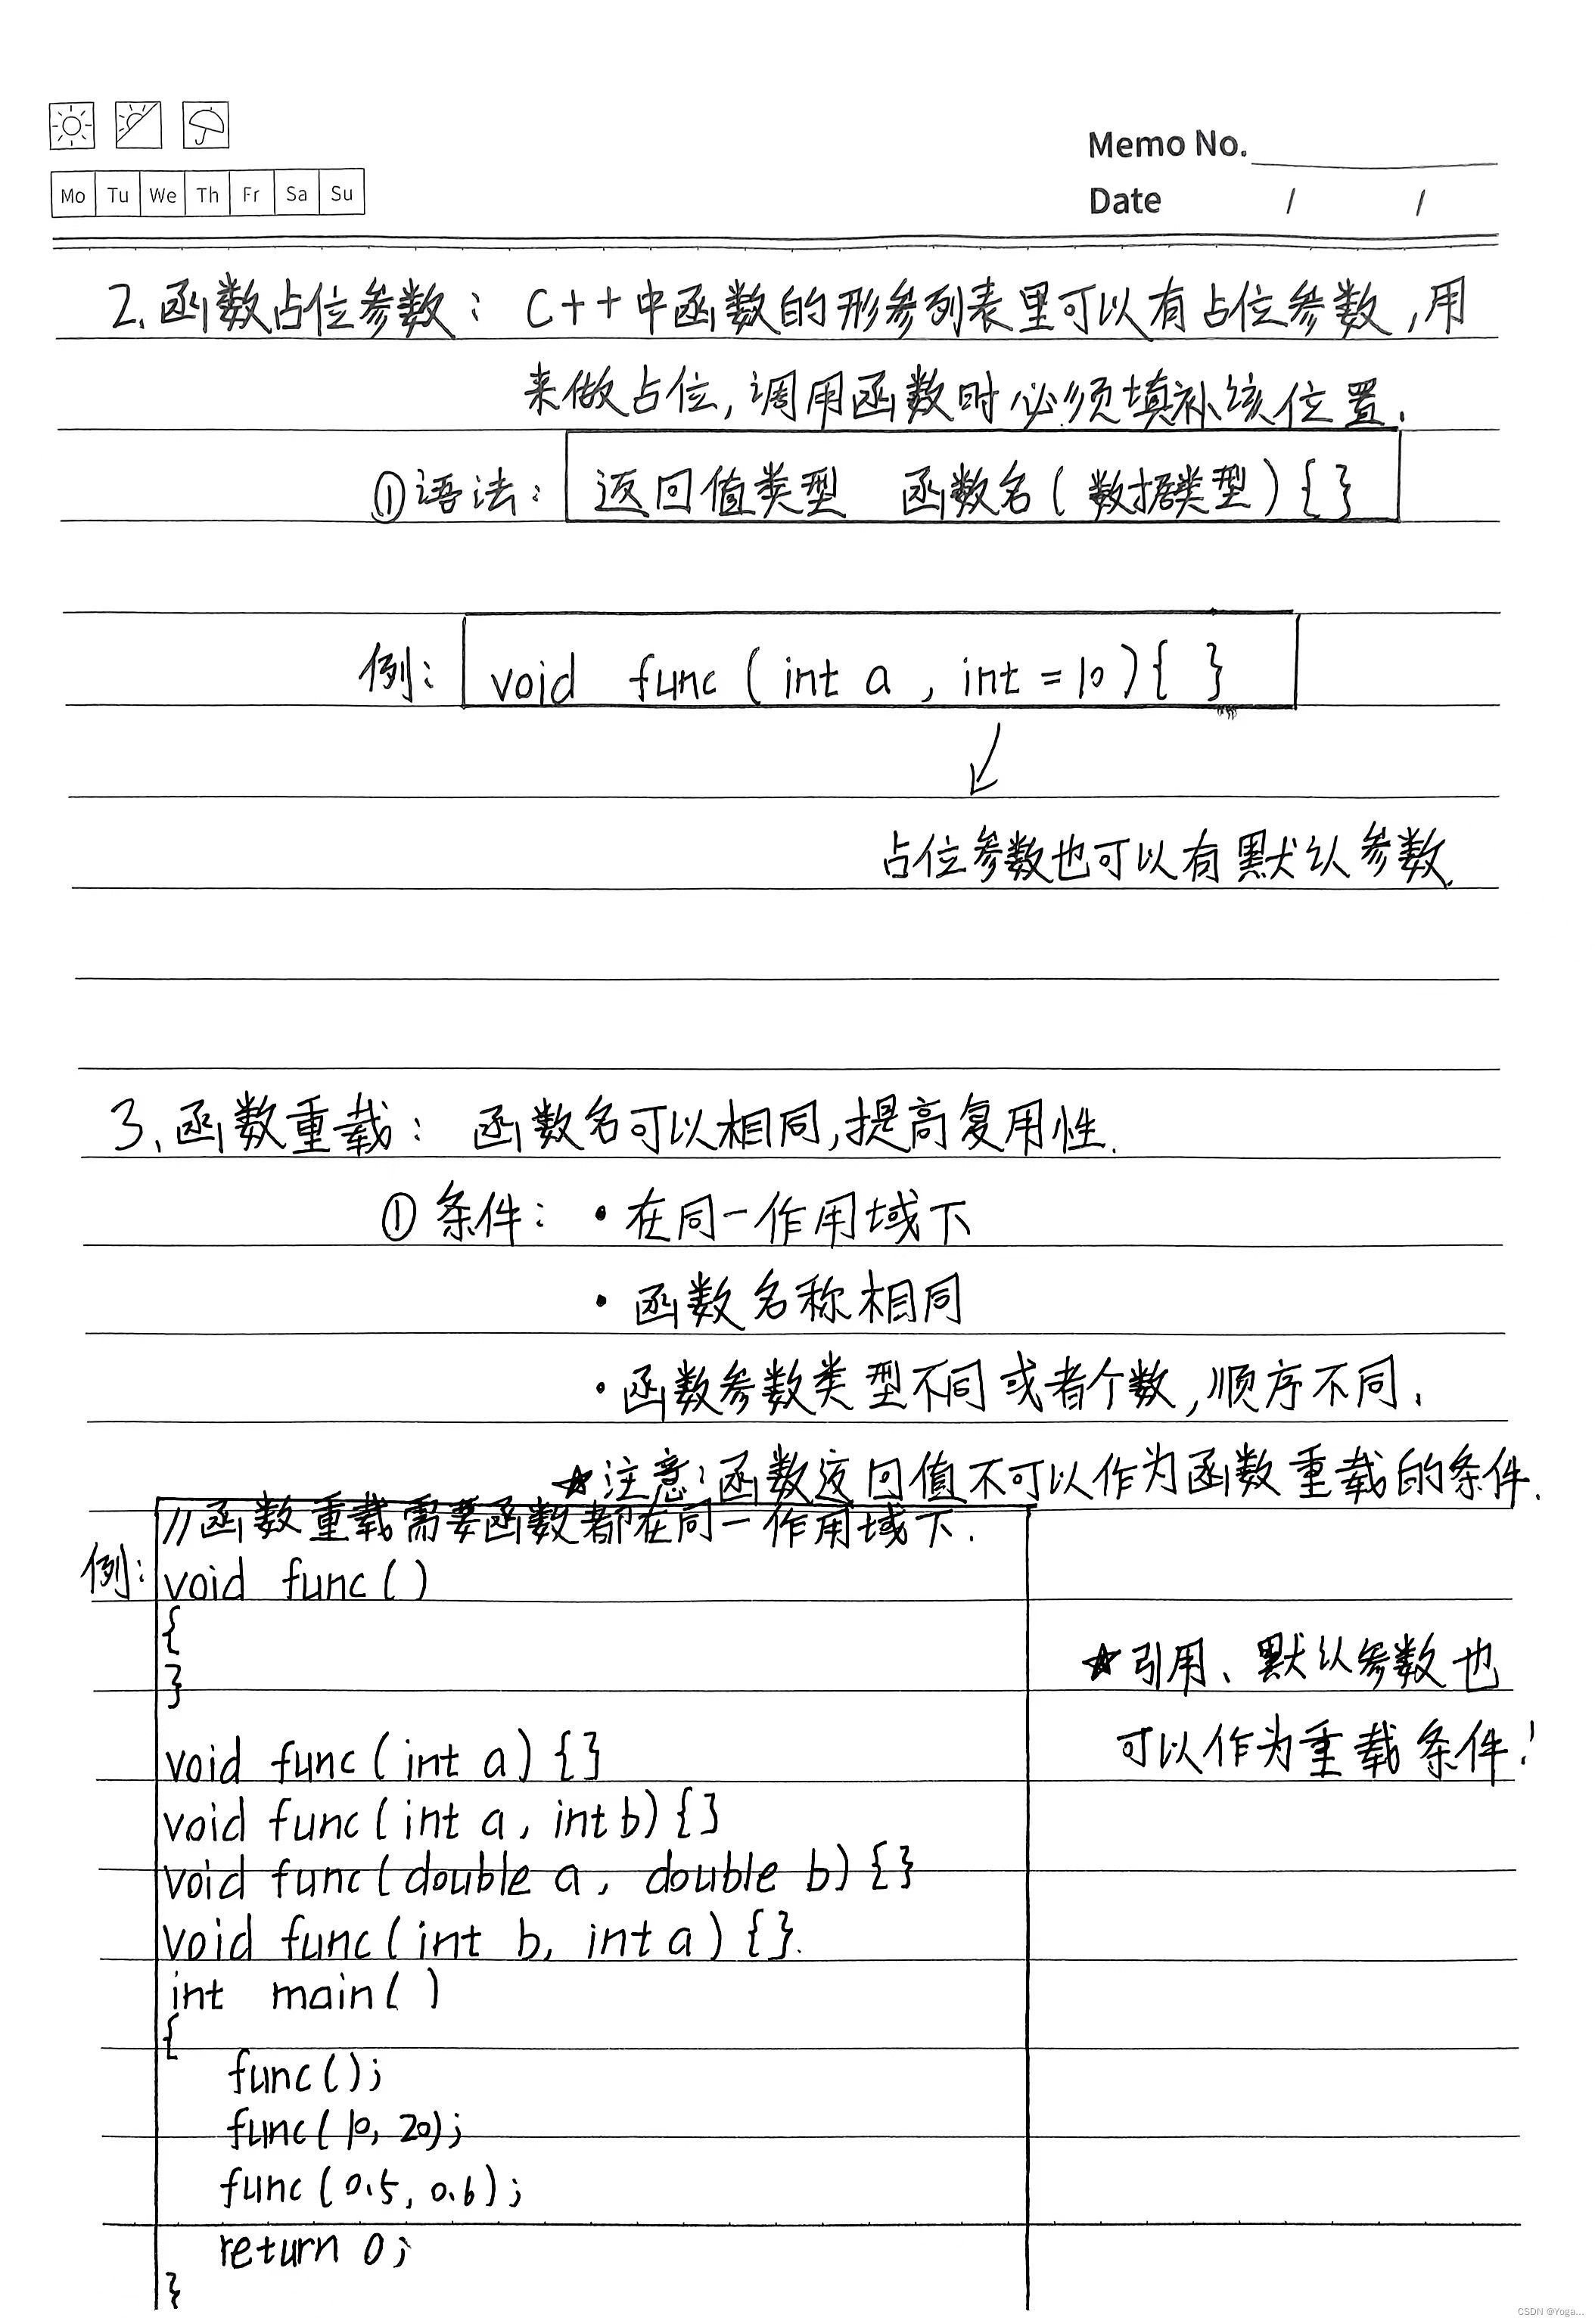 Memo No.
Mo Tu We Th Fr Sa Su
Date / /
2.函数占位参数: C++中函数的形参列表里可以有占位参数,用
来做占位,调用函数时必须填补该位置.
①语法: 返回值类型 函数名(数据类型){}
例: void func(int a, int=10){ }
占位参数也可以有默认参数.
3、函数重载: 函数名可以相同,提高复用性.
①条件: •在同一作用域下
•函数名称相同
•函数参数类型不同或者个数,顺序不同.
★注意:函数返回值不可以作为函数重载的条件.
//函数重载需要函数都在同一作用域下.
例: void func()
{
}
★引用、默认参数也
可以作为重载条件!
void func(int a){}
void func(int a, int b){}
void func(double a, double b){}
void func(int b, int a){}.
int main()
{
func();
func(10, 20);
func(0.5, 0.6);
return 0;
}
CSDN @Yoga...